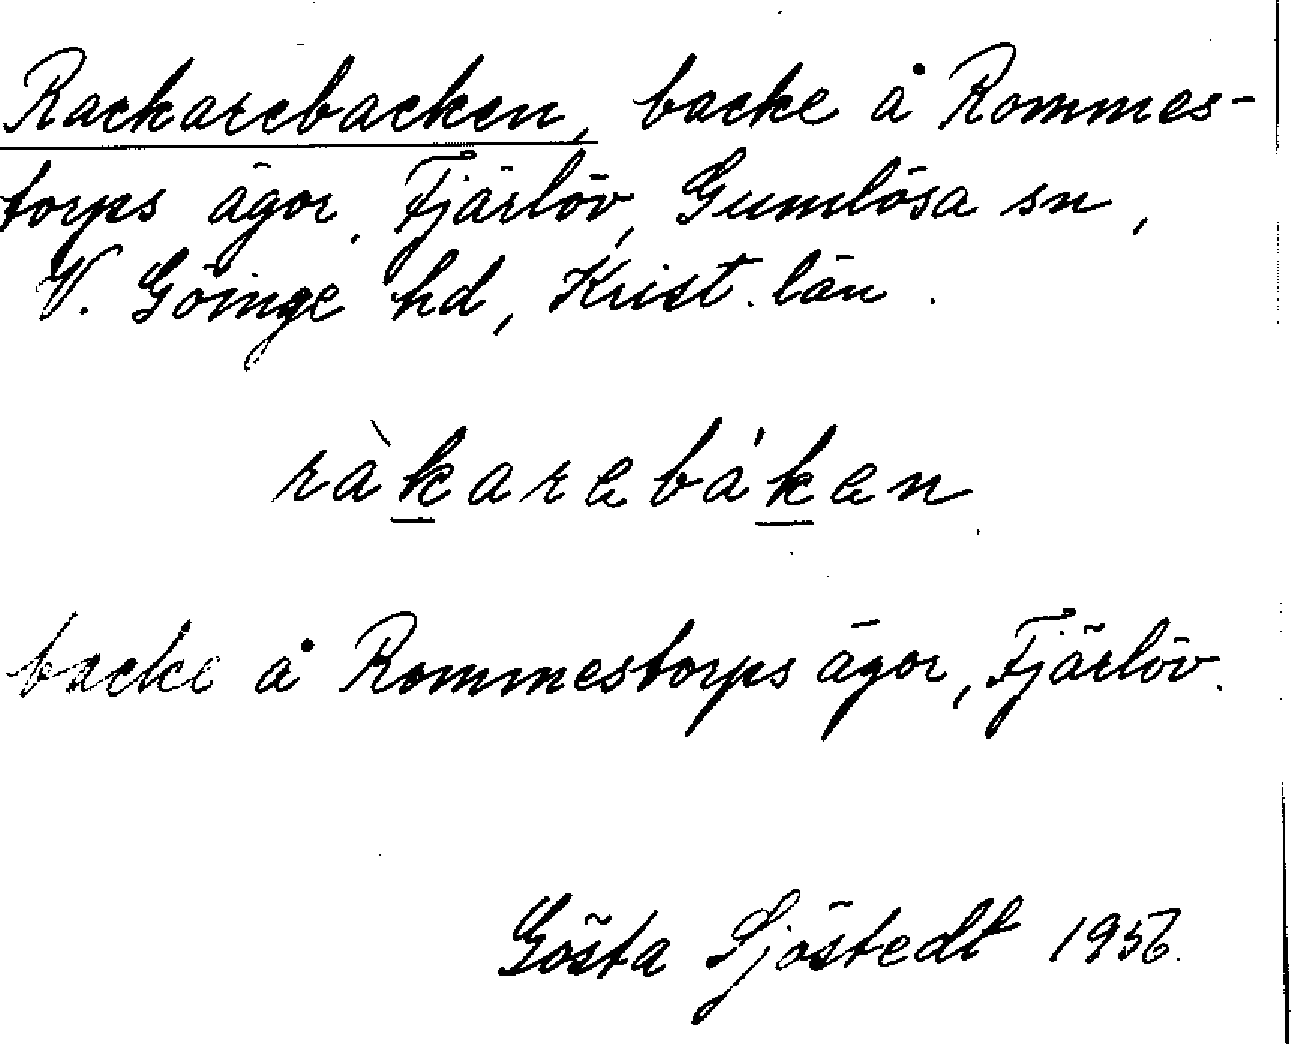 Rackarebacken, backe å Rommes-
torps ägor, Fjärlöv, Gumlösa sn,
V. Göinge hd, Krist. län.
ràkarebáken
backe å Rommestorps ägor, Fjärlöv.
Gösta Sjöstedt 1956.